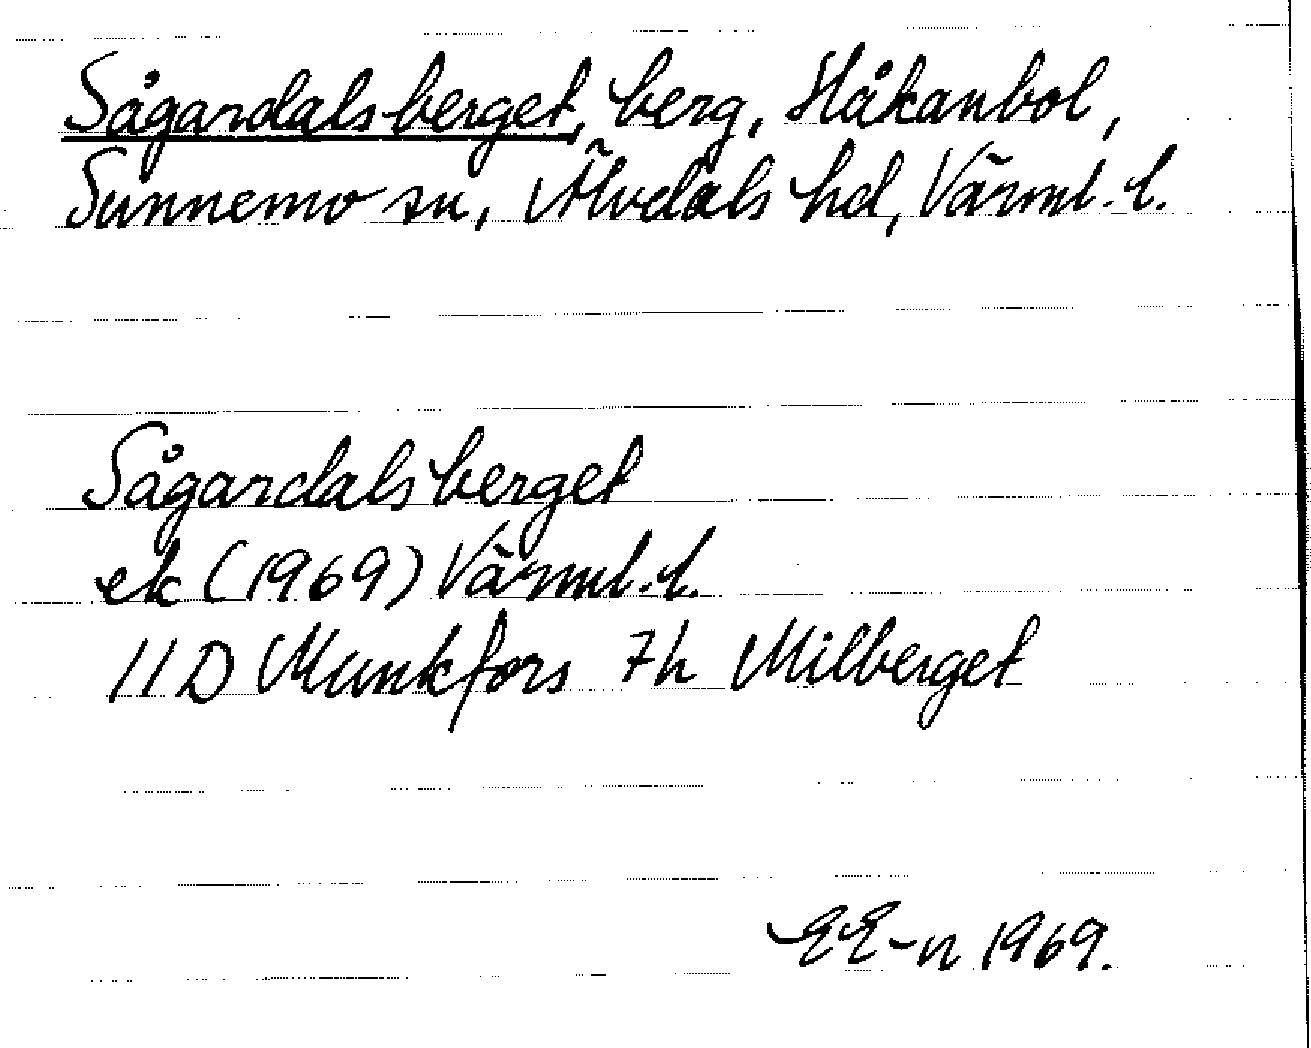 Sågardalsberget, berg, Håkanbol,
Sunnemo sn, Älvdals hd, Värml. l.
Sågardalsberget
ek (1969) Värml. l.
11 D Munkfors 7h Milberget
EE-n 1969.